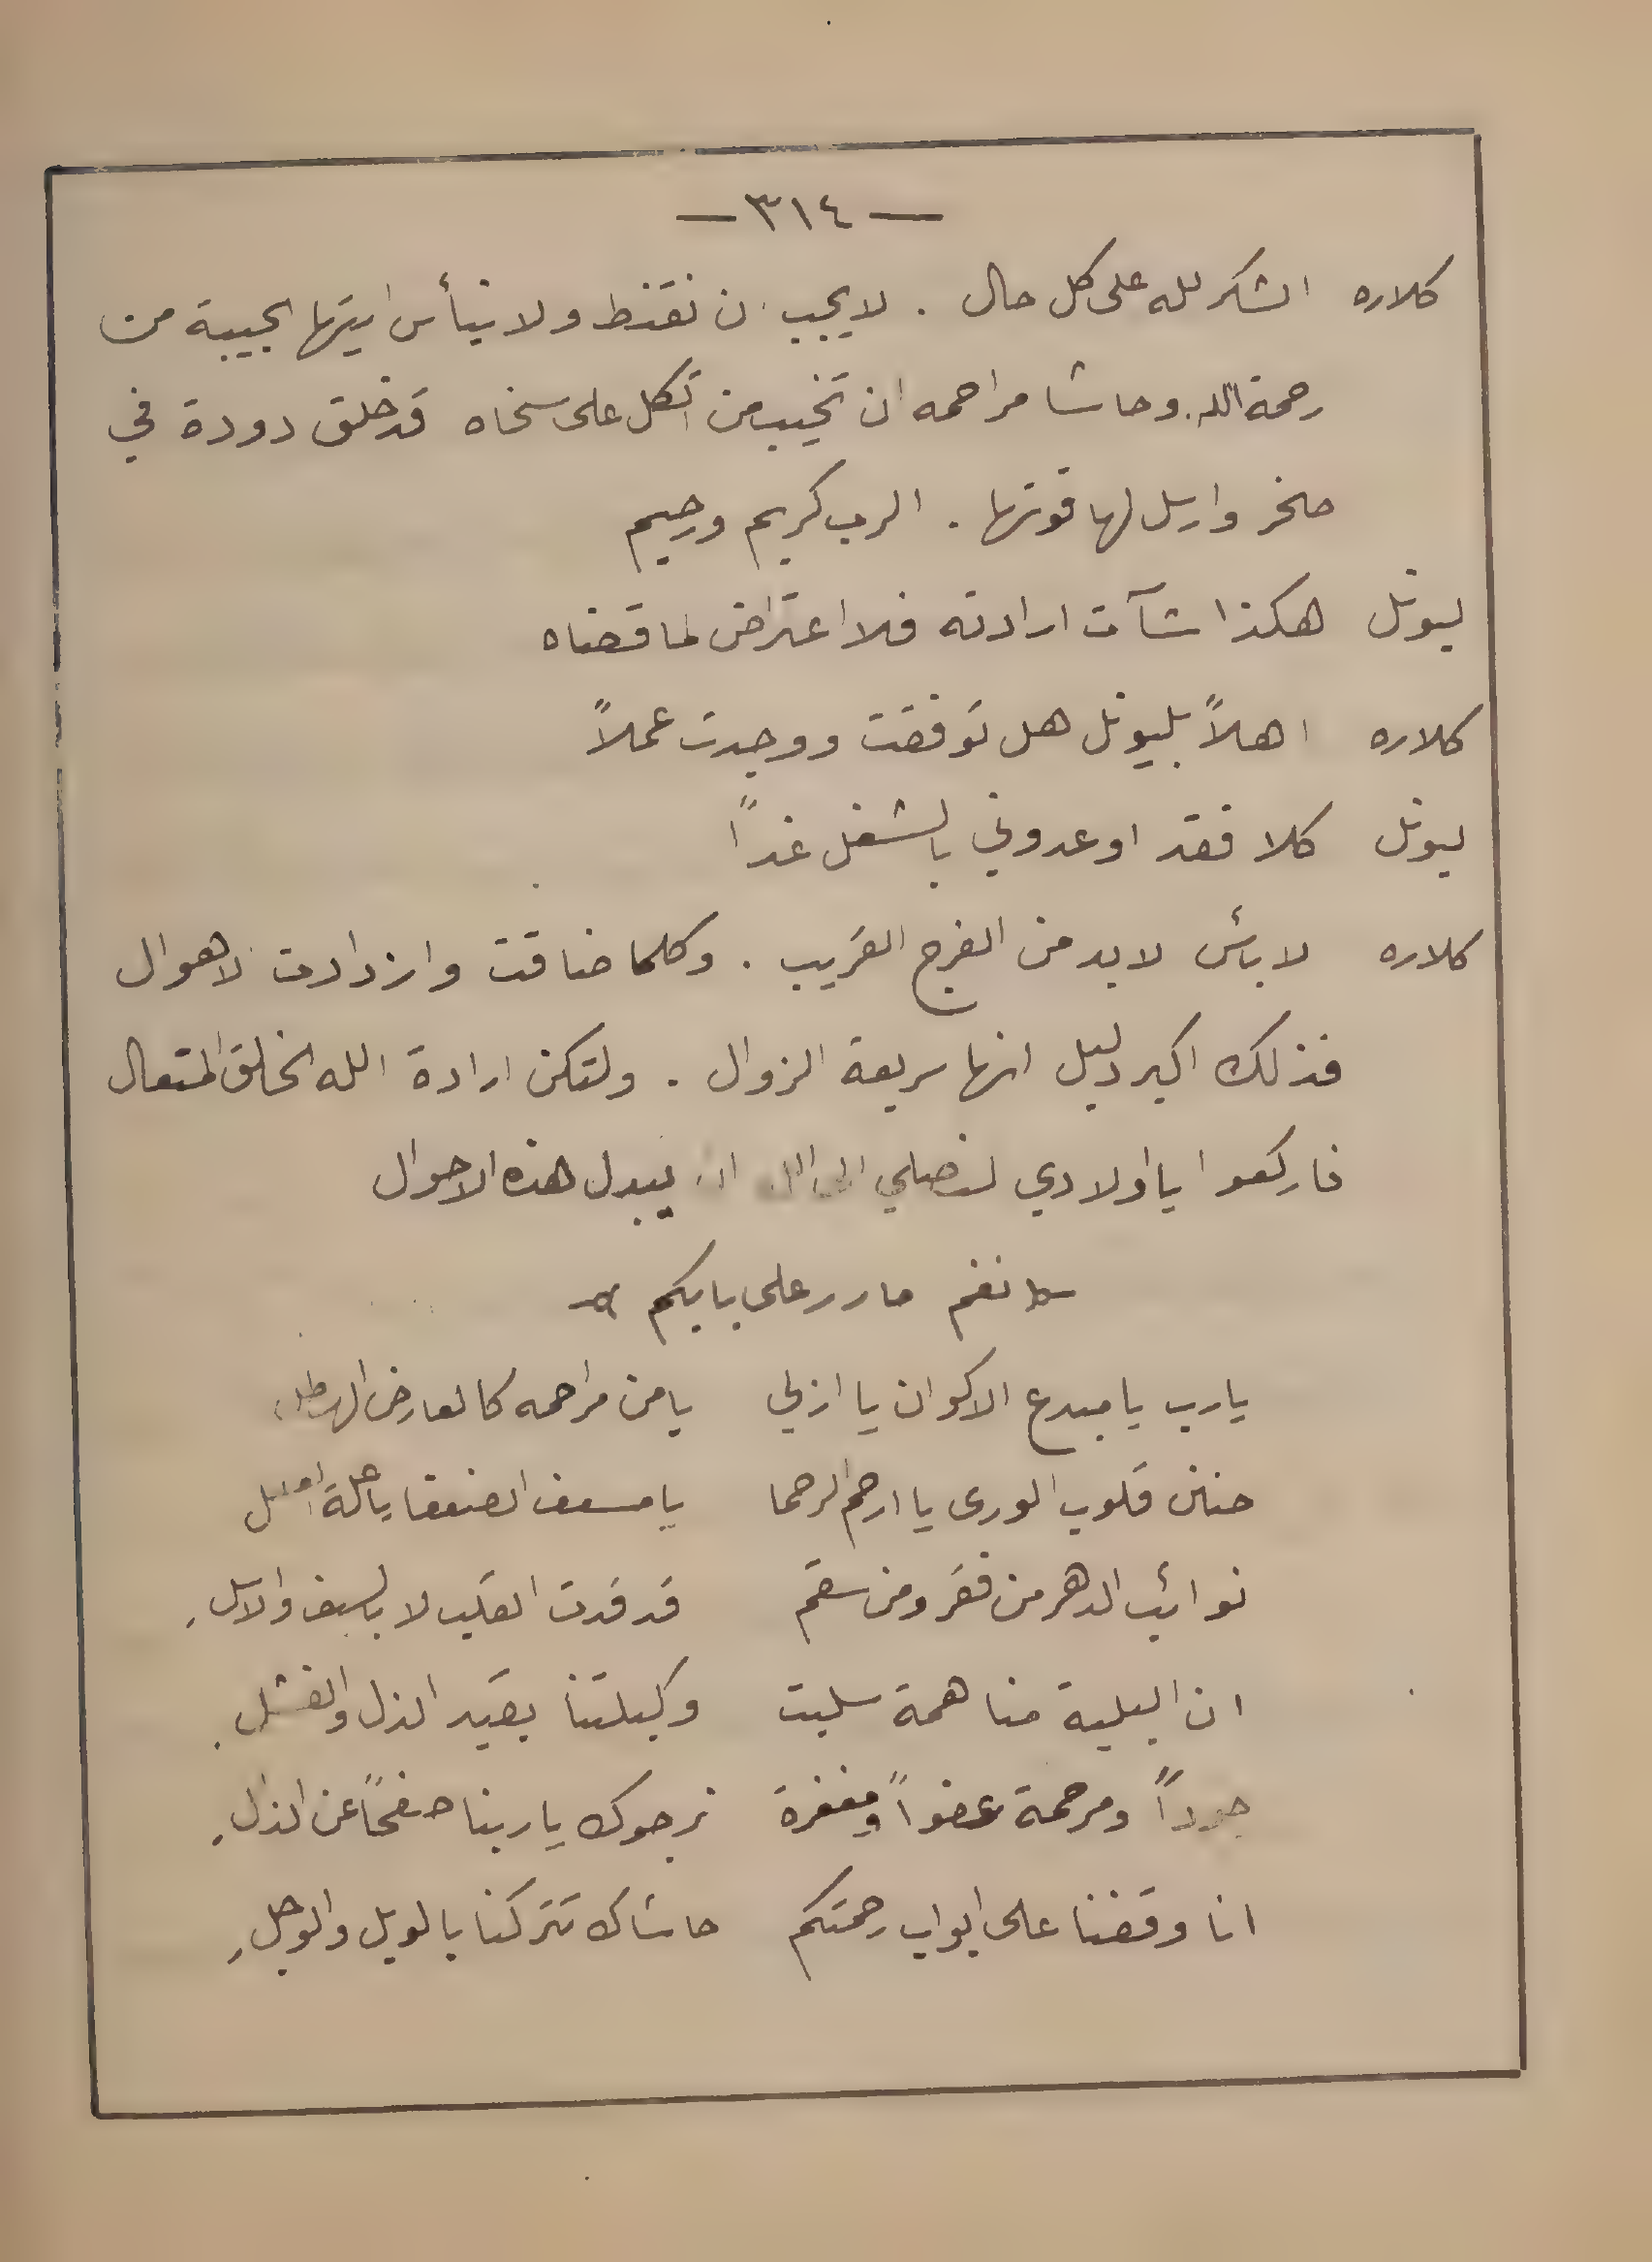 — ٣١٤ —
كلاره الشكر لله على كل حال . لا يجب ان نقنط ولا نيأس ايتها الحبيبة من
رحمة الله. وحاشا مراحمه ان تخيب من اتكل على سخاه قد خلق دودة في
صخر وارسل لها قوتها . الرب كريم ورحيم
ليونل هكذا شآت ارادته فلا اعتراض لما قضاه
كلاره اهلاً بليونل هل توفقت ووجدت عملاً
ليونل كلا فقد اوعدوني بالشغل غداً
كلاره لا بأس لا بد من الفرج القريب . وكلما ضاقت وازدادت الاهوال
فذلك اكبر دليل انها سريعة الزوال . ولتكن ارادة الله الخالق المتعال
فاركعوا يا اولادي لنصلي الى الله ان يبدل هذه الاحوال
نغم مارر على بابكم
يارب يا مبدع الاكوان يا ازلي يا من مراحمه كالعارض الهطل
حنن قلوب الورى يا ارحم الرحما يا مسعف الضعفا يا علة العلل
نوائب الدهر من فقر ومن سقم قد قدت القلب لا بالسيف والاسل
ان البلية منا همة سلبت وكبلتنا بقيد الذل والفشل
جوداً ومرحمة عفواً ومغفرة نرجوك يا ربنا صفحاً عن الذلل
انا وقفنا على ابواب رحمتكم حاشاك تتركنا بالويل والوجل